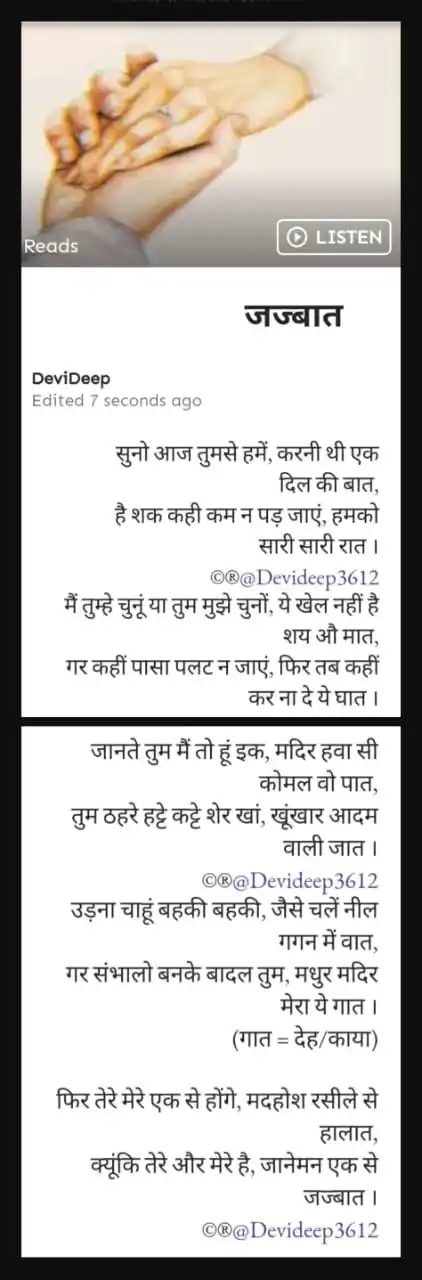 Reads
LISTEN
जज्बात
DeviDeep
Edited 7 seconds ago
सुनो आज तुमसे हमें, करनी थी एक
दिल की बात,
है शक कही कम न पड़ जाएं, हमको
सारी सारी रात ।
©®@Devideep3612
मैं तुम्हे चुनूं या तुम मुझे चुनों, ये खेल नहीं है
शय औ मात,
गर कहीं पासा पलट न जाएं, फिर तब कहीं
कर ना दे ये घात ।
जानते तुम मैं तो हूं इक, मदिर हवा सी
कोमल वो पात,
तुम ठहरे हट्टे कट्टे शेर खां, खूंखार आदम
वाली जात ।
©®@Devideep3612
उड़ना चाहूं बहकी बहकी, जैसे चलें नील
गगन में वात,
गर संभालो बनके बादल तुम, मधुर मदिर
मेरा ये गात ।
(गात = देह/काया)
फिर तेरे मेरे एक से होंगे, मदहोश रसीले से
हालात,
क्यूंकि तेरे और मेरे है, जानेमन एक से
जज्बात ।
©®@Devideep3612